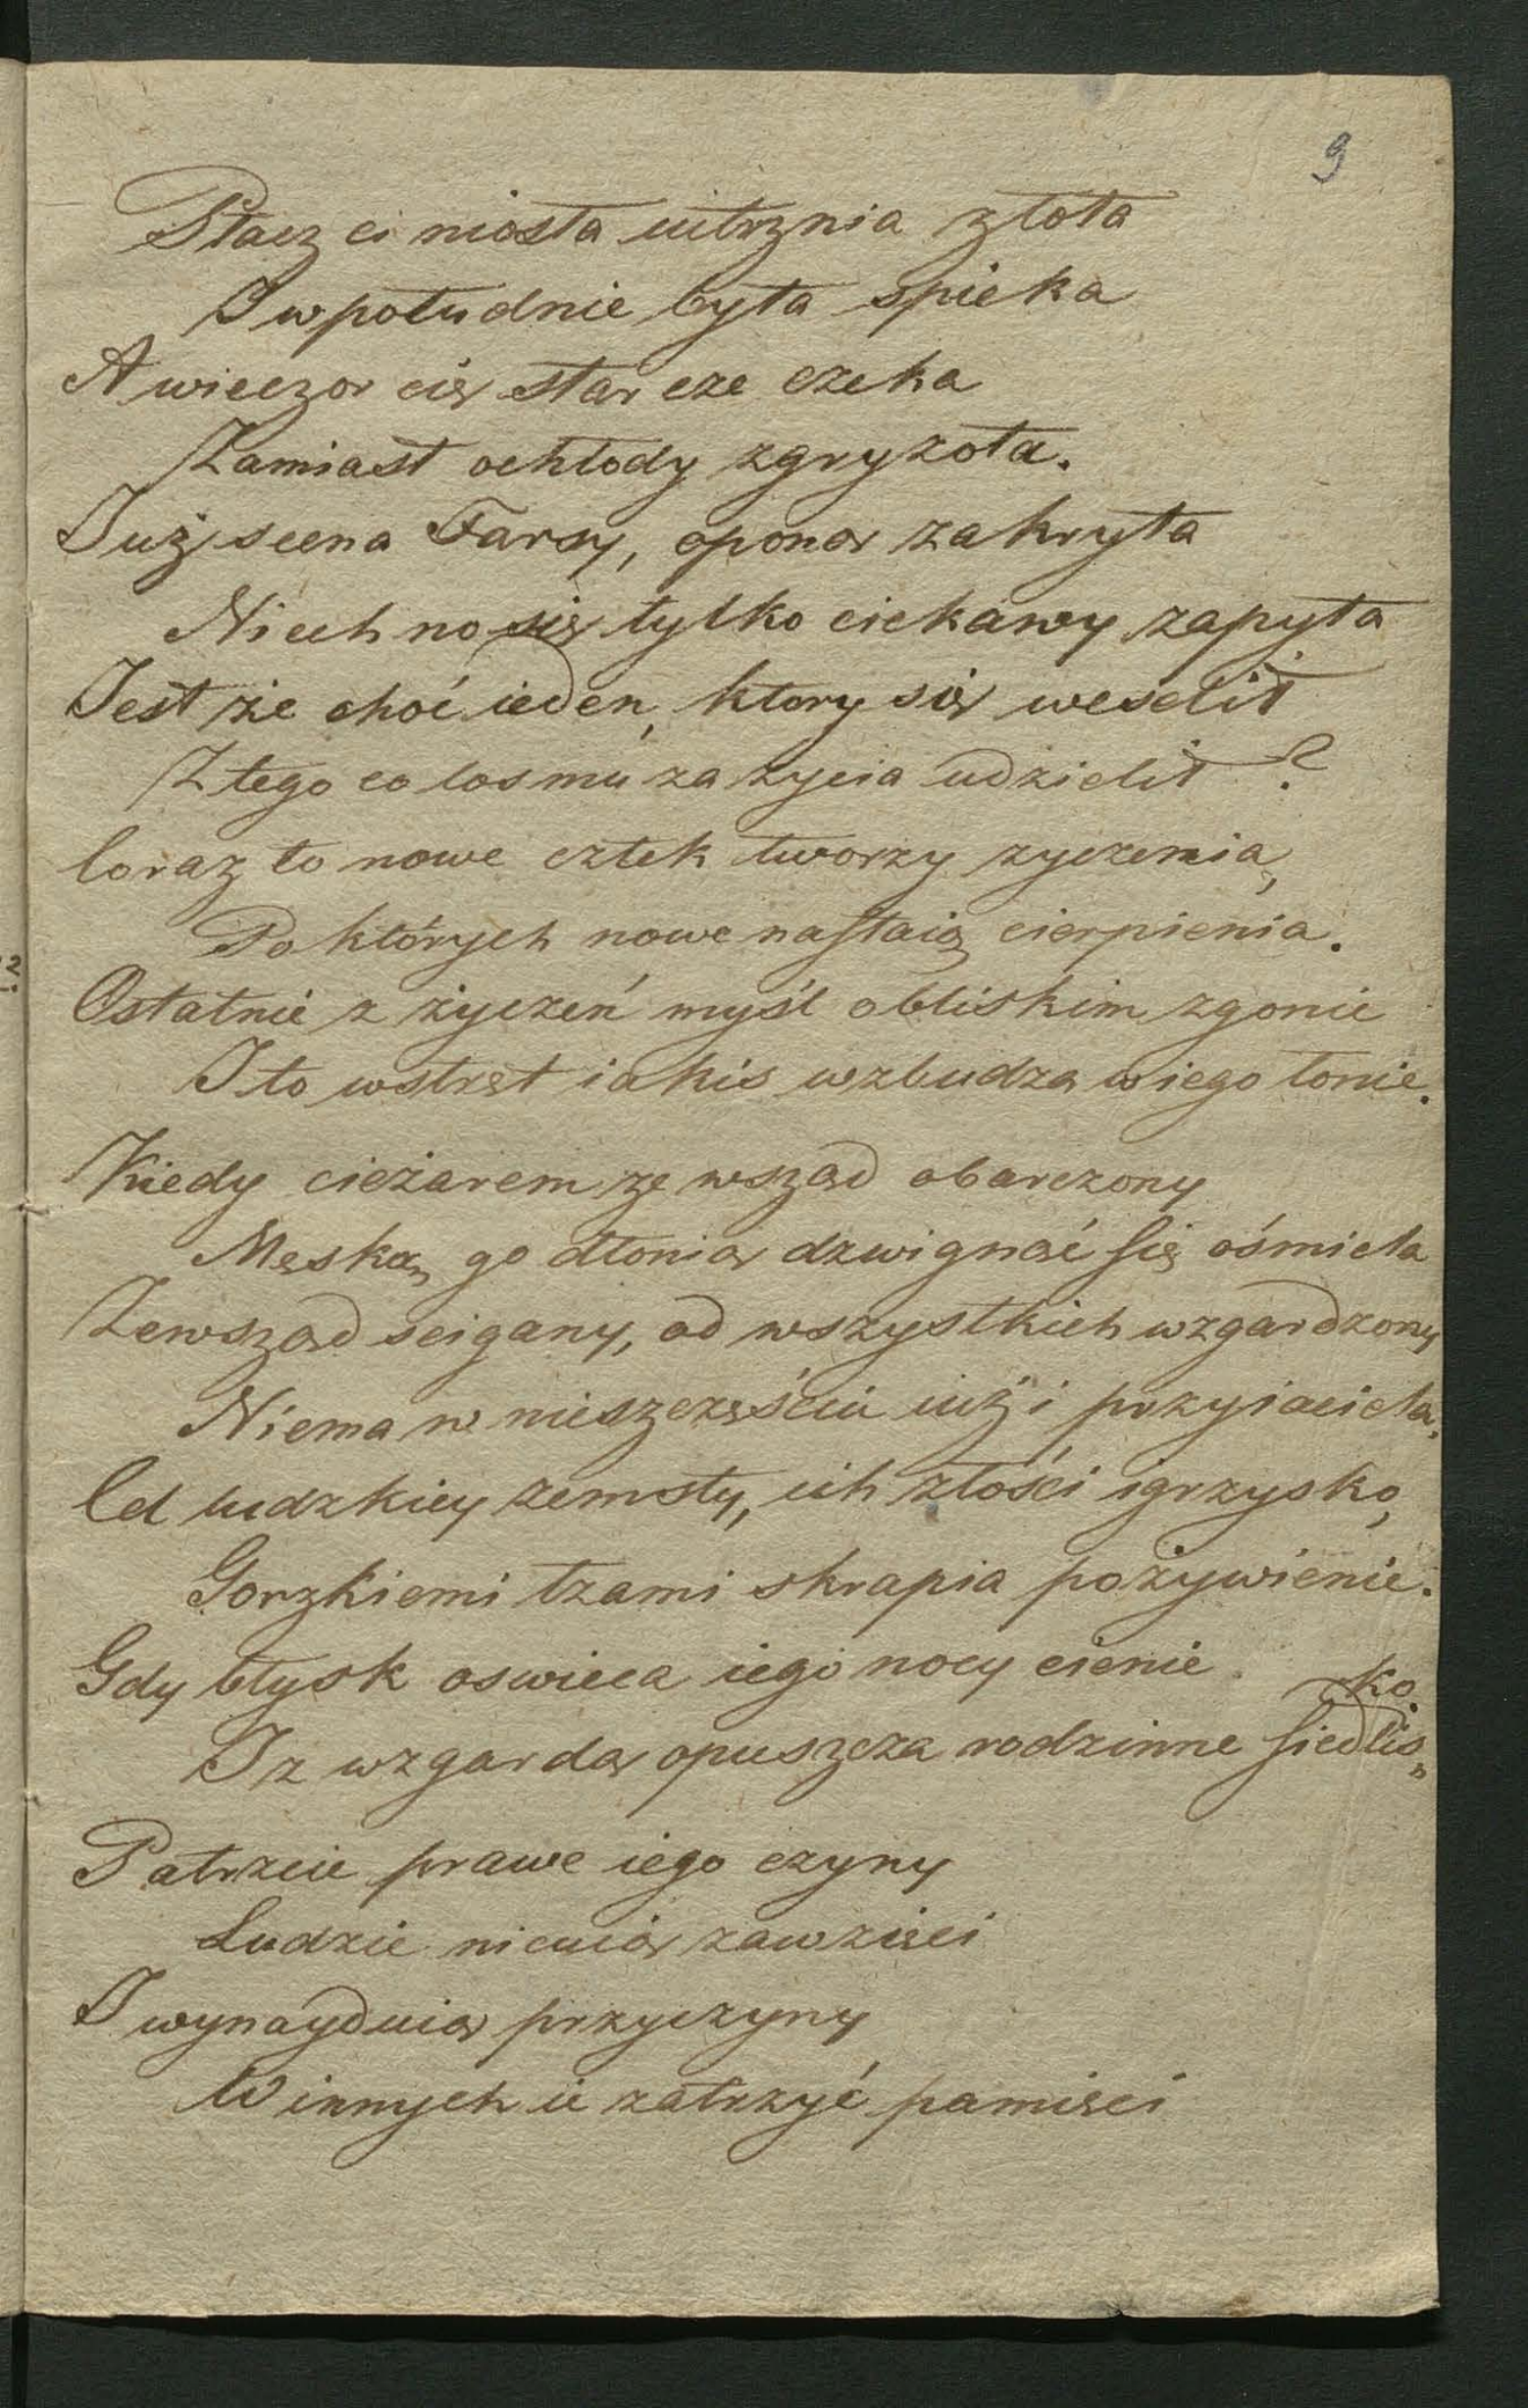 9
Płacz ci niosła iutrznia złota
I w południe była spieka
A wieczor cię starcze czeka
Zamiast ochłody zgryzota.
Już scena Farsy, oponą zakryta
Niech no się tylko ciekawy zapyta
Jest że choć ieden, ktory się weselił
Z tego co los mu za życia udzielił?
Coraz to nowe człek tworzy zyczenia,
Po których nowe nastaią cierpienia.
Ostatnie z życzeń myśl o bliskim zgonie
I to wstręt iakis wzbudza w iego łonie.
Kiedy cieżarem ze wsząd obarczony
Męską go dłonią dzwignąć się ośmiela
Zewsząd scigany, od wszystkich wzgardzony
Niema w nieszczęściu iuż i przyiaciela,
Cel ludzkiey zemsty, ich złości igrzysko,
Gorzkiemi łzami skrapia pożywienie.
Gdy błysk oswieca iego nocy cienie
I z wzgardą opuszcza rodzinne siedlis„
ko.
Patrzcie prawe iego czyny
Ludzie nicuią zawzięci
I wynayduią przyczyny
W innych ie zatrzyć pamięci